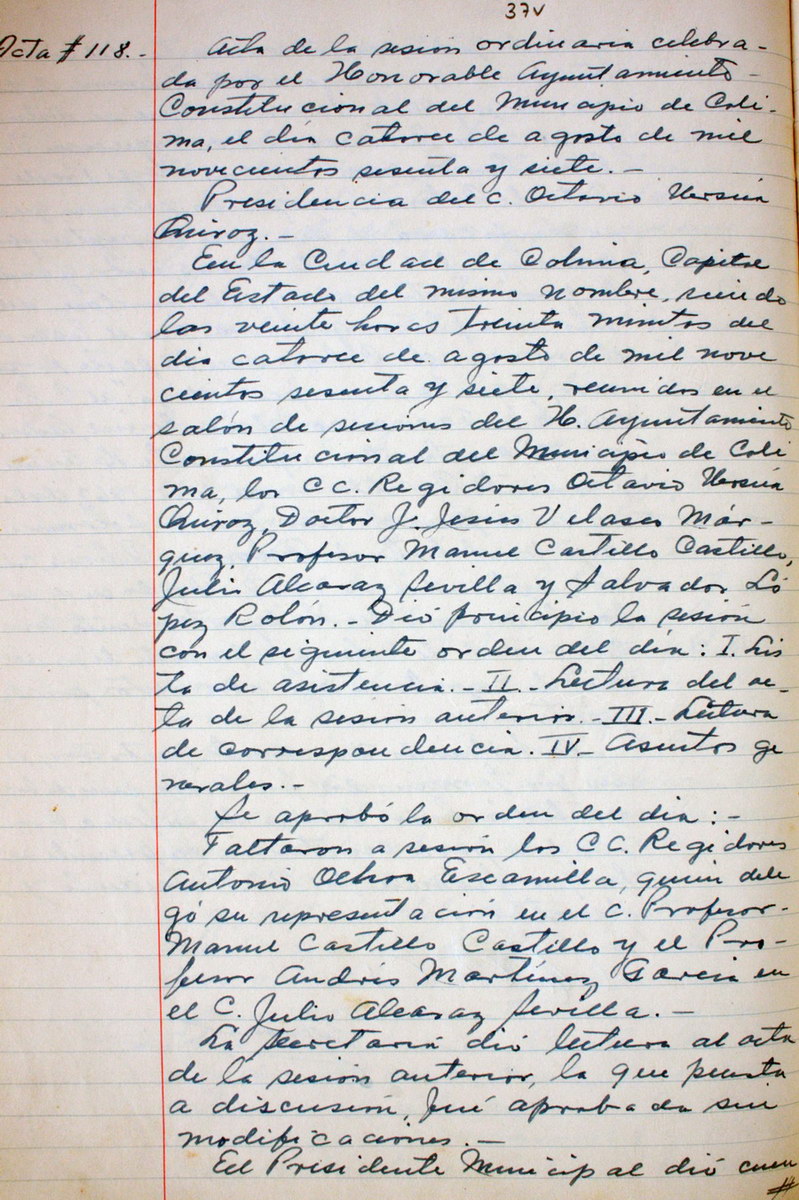 37v
Acta # 118.-
Acta de la sesión ordinaria celebra-
da por el Honorable Ayuntamiento-
Constitucional del Municipio de Coli-
ma, el día catorce de agosto de mil
novecientos sesenta y siete.-
Presidencia del C. Octavio Ursúa
Quiroz.-
En la Ciudad de Colima, Capital
del Estado del mismo nombre, siendo
las veinte horas treinta minutos del
día catorce de agosto de mil nove
cientos sesenta y siete, reunidos en el
salón de sesiones del H. Ayuntamiento
Constitucional del Municipio de Coli
ma, los CC. Regidores Octavio Ursúa
Quiroz, Doctor J. Jesús Velasco Már-
quez, Profesor Manuel Castillo Castillo,
Julio Alcaraz Sevilla y Salvador Ló
pez Rolón.- Dió principio la sesión
con el siguiente orden del día: I. Lis
ta de asistencia.- II.- Lectura del ac-
ta de la sesión anterior.- III.- Lectura
de correspondencia. IV- Asuntos ge
nerales.-
Se aprobó la orden del día:-
Faltaron a sesión los CC. Regidores
Antonio Ochoa Escamilla, quien dele
gó su representación en el C. Profesor-
Manuel Castillo Castillo y el Pro-
fesor Andrés Martínez García en
el C. Julio Alcaraz Sevilla.-
La Secretaría dió lectura al acta
de la sesión anterior, la que puesta
a discusión, fué aprobada sin
modificaciones.-
El Presidente Municipal dió cuen
#